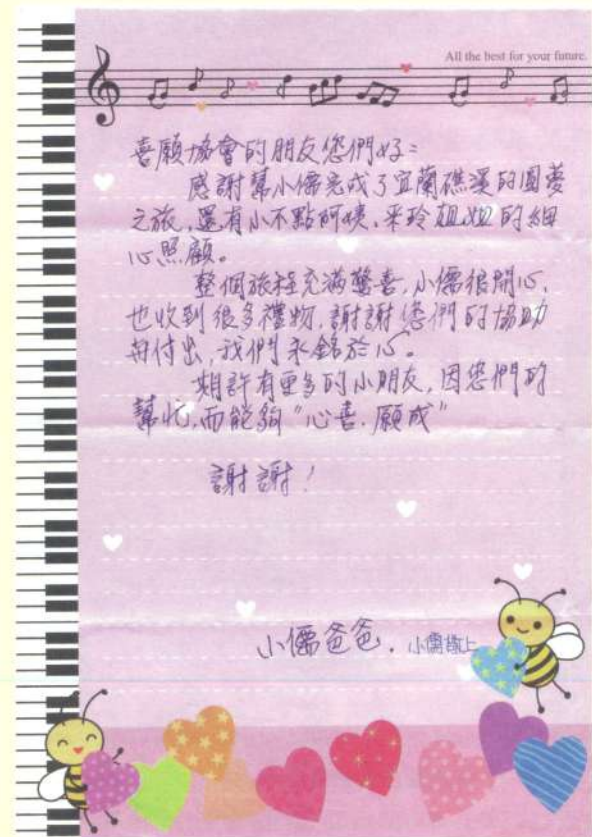 All the best for your future.
喜願協會的朋友您們好:
感謝幫小儒完成了宜蘭礁溪的圓夢
之旅,還有小不點阿姨、采玲姐姐的細
心照顧。
整個旅程充滿驚喜,小儒很開心,
也收到很多禮物,謝謝您們的協助
與付出,我們永銘於心。
期許有更多的小朋友,因您們的
幫忙,而能夠"心喜.願成"
謝謝!
小儒爸爸. 小儒敬上